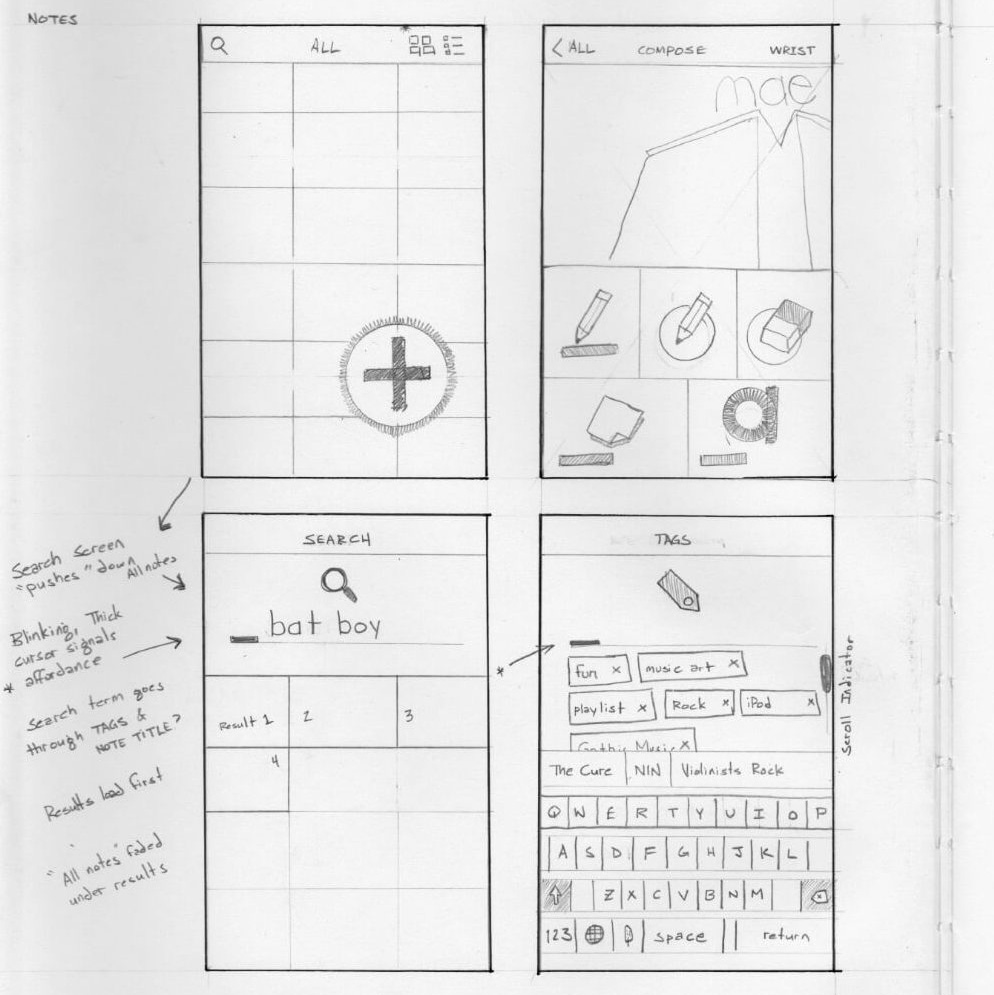 NOTES
ALL
< ALL
COMPOSE
WRIST
mae
a
Search Screen
"pushes" down
All notes
Blinking, Thick
cursor signals
* affordance
Search term goes
through TAGS &
NOTE TITLE?
Results load first
"All notes" faded
under results
SEARCH
bat boy
Result 1
2
3
4
TAGS
*
fun x
music art x
playlist x
Rock x
iPod x
Gothic Music x
The Cure
NIN
Violinists Rock
Q W E R T Y U I O P
A S D F G H J K L
Z X C V B N M
123
space
return
Scroll Indicator